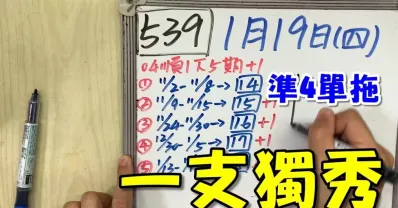 539 1月19日(四)
04順1下5期+1
① 11/2-11/8→14
② 11/9-11/15→15 +1
③ 11/24-11/30→16 +1
④ 12/30-1/5→17 +1
準4單拖
一支獨秀